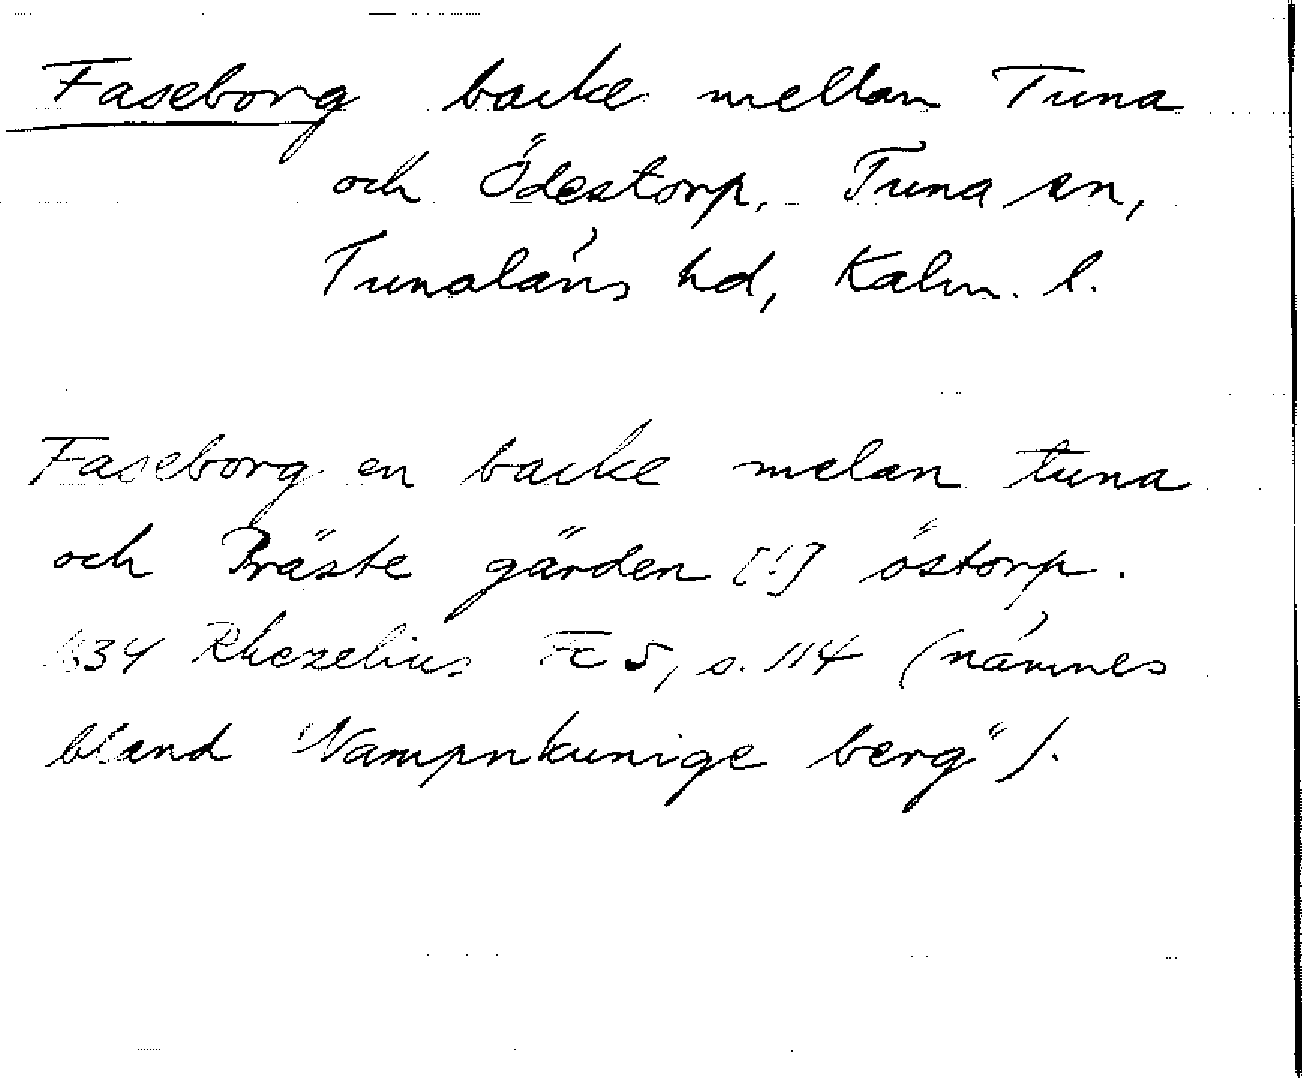 Faseborg backe mellan Tuna
och Ödestorp, Tuna sn,
Tunaläns hd, Kalm. l.
Faseborg en backe melan tuna
och Präste gärden [!] östorp.
1634 Rhezelius Fc 5, s. 114 (nämnes
bland "Nampnkunige berg").